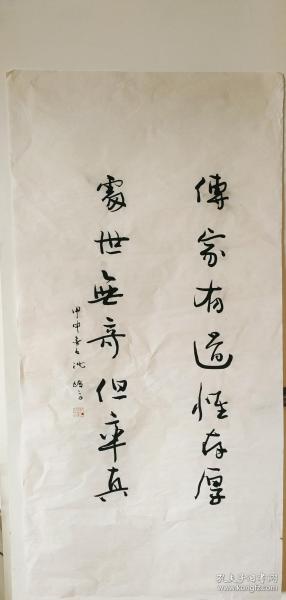 傳家有道惟存厚
處世無奇但率真
甲申
沈鵬
孔夫子旧书网